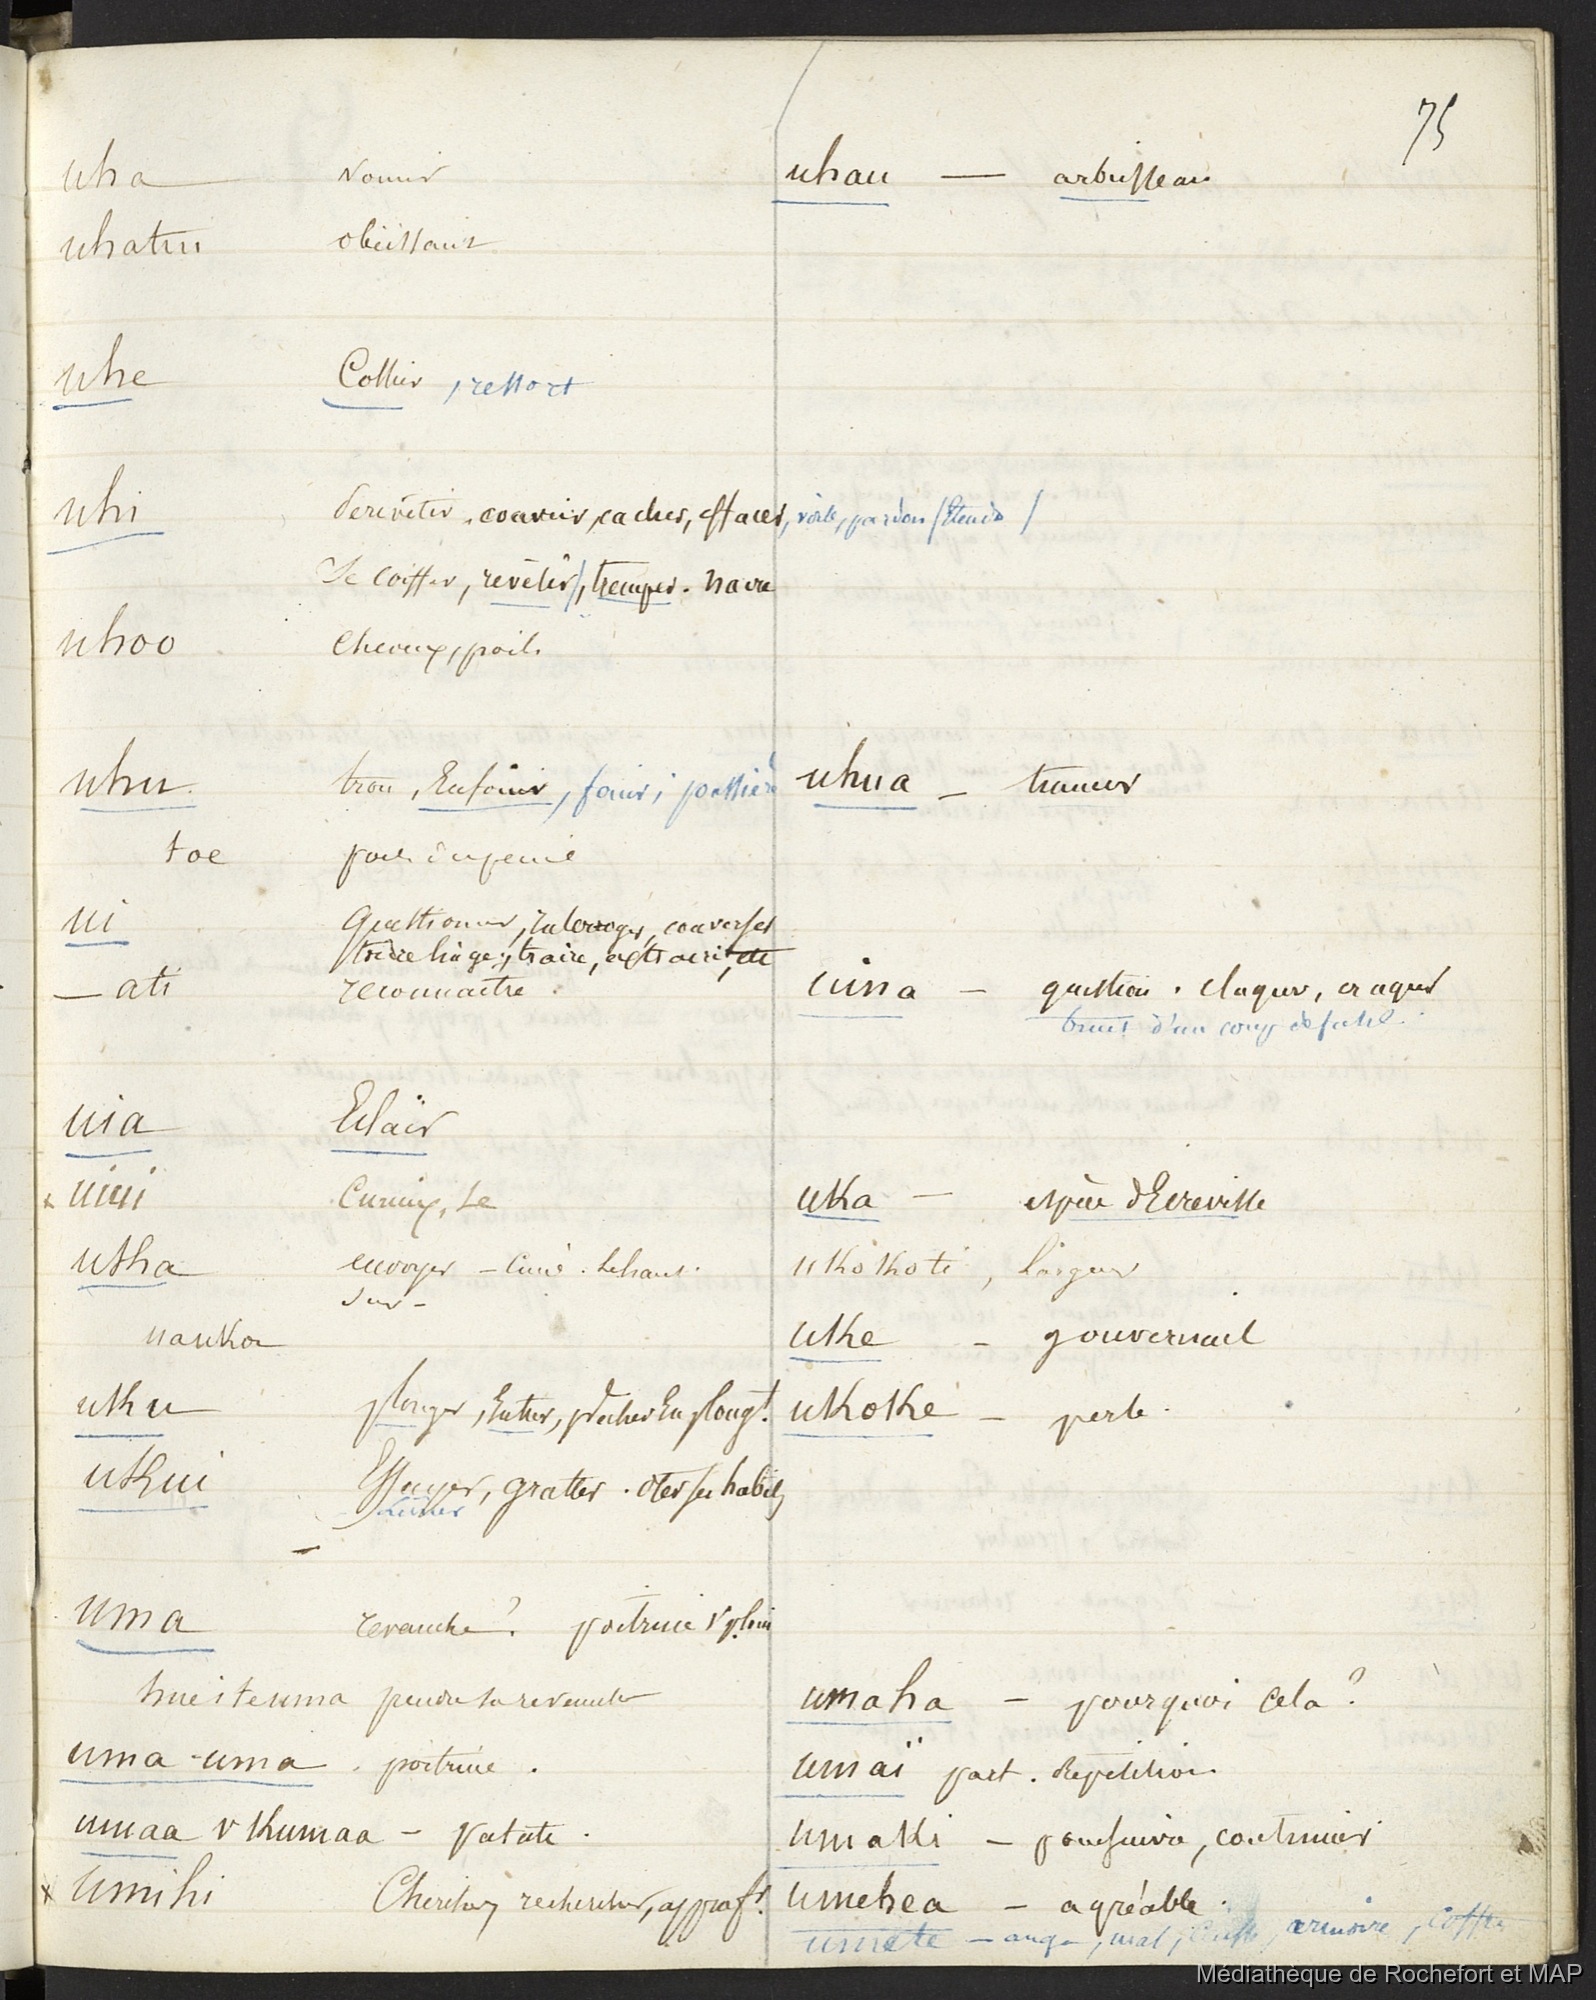 75
uha vomir
uhatu obéissant
uhe Collier, ressort
uhi Se revêtir, couvrir, cacher, effacer, voile, pardon
Se coiffer, revêtir, tremper.
uhoo cheveux, poils
uhu trou, Enfouir, fouir;
toe
ui Questionner, interroger, converser
traire,
— ati reconnaitre.
uia Eclair
x uiui Curieux, le
ukha envoyer –
sur –
naukoa
uku plonger, Entrer, pêcher En plongt.
ukui Essuyer, gratter. oter ses habits
uma revanche? poitrine
hueiteuma prendre sa revanche
uma-uma. poitrine.
umaa v Kumaa – patate.
x umihi Chercher, rechercher,
uhau — arbrisseau
uhua – trouver
uina – question. claquer, craquer
bruit d'un coup de fusil.
uka — espèce d'Ecrevisse
ukokoti, longueur
uke – gouvernail
ukoke – perte.
umaha – pourquoi cela?
umaï part. Répétition
umaki – poursuivre, continuer
umehea – agréable.
umete – auge, mal, armoire, coffre
Médiathèque de Rochefort et MAP